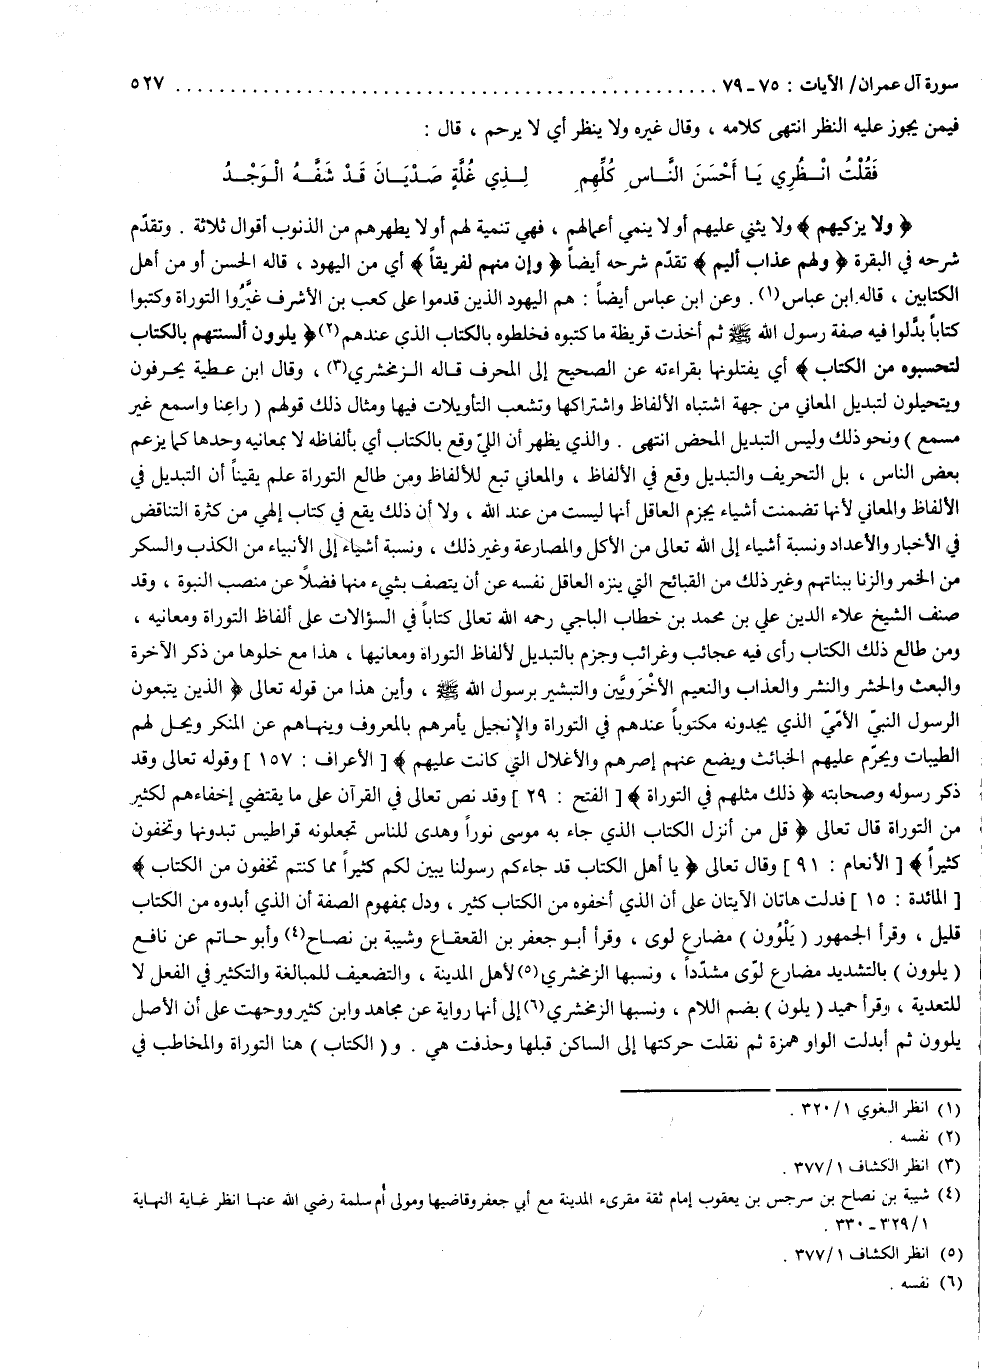 سورة آل عمران/ الآيات : ٧٥ ـ ٧٩ . . . . . . . . . . . . . . . . . . . . . . . . . . . . . . . . . . . . . . . . . . . . . . . . ٥٢٧
فيمن يجوز عليه النظر انتهى كلامه ، وقال غيره ولا ينظر أي لا يرحم ، قال :
فَقُلْتُ انْـظُرِي يَـا أَحْسَنَ النَّـاسِ كُلِّهِمِ لِـذِي غُلَّةٍ صَـدْيَـانَ قَـدْ شَفَّـهُ الْـوَجْـدُ
﴿ ولا يزكيهم ﴾ ولا يثني عليهم أو لا ينمي أعمالهم ، فهي تنمية لهم أو لا يطهرهم من الذنوب أقوال ثلاثة . وتقدّم
شرحه في البقرة ﴿ ولهم عذاب أليم ﴾ تقدّم شرحه أيضاً ﴿ وإن منهم لفريقاً ﴾ أي من اليهود ، قاله الحسن أو من أهل
الكتابين ، قاله ابن عباس(١) . وعن ابن عباس أيضاً : هم اليهود الذين قدموا على كعب بن الأشرف غيَّرُوا التوراة وكتبوا
كتاباً بدَّلوا فيه صفة رسول الله ﷺ ثم أخذت قريظة ما كتبوه فخلطوه بالكتاب الذي عندهم(٢) ﴿ يلوون ألسنتهم بالكتاب
لتحسبوه من الكتاب ﴾ أي يفتلونها بقراءته عن الصحيح إلى المحرف قاله الـزمخشري(٣) ، وقال ابن عـطية يحـرفون
ويتحيلون لتبديل المعاني من جهة اشتباه الألفاظ واشتراكها وتشعب التأويلات فيها ومثال ذلك قولهم ( راعِنا واسمع غير
مسمع ) ونحو ذلك وليس التبديل المحض انتهى . والذي يظهر أن الليّ وقع بالكتاب أي بألفاظه لا بمعانيه وحدها كما يزعم
بعض الناس ، بل التحريف والتبديل وقع في الألفاظ ، والمعاني تبع للألفاظ ومن طالع التوراة علم يقيناً أن التبديل في
الألفاظ والمعاني لأنها تضمنت أشياء يجزم العاقل أنها ليست من عند الله ، ولا أن ذلك يقع في كتاب إلهي من كثرة التناقض
في الأخبار والأعداد ونسبة أشياء إلى الله تعالى من الأكل والمصارعة وغير ذلك ، ونسبة أشياء إلى الأنبياء من الكذب والسكر
من الخمر والزنا ببناتهم وغير ذلك من القبائح التي ينزه العاقل نفسه عن أن يتصف بشيء منها فضلاً عن منصب النبوة ، وقد
صنف الشيخ علاء الدين علي بن محمد بن خطاب الباجي رحمه الله تعالى كتاباً في السؤالات على ألفاظ التوراة ومعانيه ،
ومن طالع ذلك الكتاب رأى فيه عجائب وغرائب وجزم بالتبديل لألفاظ التوراة ومعانيها ، هذا مع خلوها من ذكر الآخرة
والبعث والحشر والنشر والعذاب والنعيم الأخْرَويَّين والتبشير برسول الله ﷺ ، وأين هذا من قوله تعالى ﴿ الذين يتبعون
الرسول النبيّ الأمّيّ الذي يجدونه مكتوباً عندهم في التوراة والإنجيل يأمرهم بالمعروف وينهـاهم عن المنكر ويحـل لهم
الطيبات ويحرّم عليهم الخبائث ويضع عنهم إصرهم والأغلال التي كانت عليهم ﴾ [ الأعراف : ١٥٧ ] وقوله تعالى وقد
ذكر رسوله وصحابته ﴿ ذلك مثلهم في التوراة ﴾ [ الفتح : ٢٩ ] وقد نص تعالى في القرآن على ما يقتضي إخفاءهم لكثير
من التوراة قال تعالى ﴿ قل من أنزل الكتاب الذي جاء به موسى نوراً وهدى للناس تجعلونه قراطيس تبدونها وتخفون
كثيراً ﴾ [ الأنعام : ٩١ ] وقال تعالى ﴿ يا أهل الكتاب قد جاءكم رسولنا يبين لكم كثيراً مما كنتم تخفون من الكتاب ﴾
[ المائدة : ١٥ ] فدلت هاتان الآيتان على أن الذي أخفوه من الكتاب كثير ، ودل بمفهوم الصفة أن الذي أبدوه من الكتاب
قليل ، وقرأ الجمهور ( يَلْوُون ) مضارع لوى ، وقرأ أبـو جعفر بن القعقـاع وشيبة بن نصـاح(٤) وأبو حـاتم عن نافـع
( يلوون ) بالتشديد مضارع لوّى مشدّداً ، ونسبها الزمخشري(٥) لأهل المدينة ، والتضعيف للمبالغة والتكثير في الفعل لا
للتعدية ، وقرأ حميد ( يلون ) بضم اللام ، ونسبها الزمخشري(٦) إلى أنها رواية عن مجاهد وابن كثير ووجهت على أن الأصل
يلوون ثم أبدلت الواو همزة ثم نقلت حركتها إلى الساكن قبلها وحذفت هي . و ( الكتاب ) هنا التوراة والمخاطب في
(١) انظر البغوي ٣٢٠/١ .
(٢) نفسه .
(٣) انظر الكشاف ٣٧٧/١ .
(٤) شيبة بن نصاح بن سرجس بن يعقوب إمام ثقة مقرىء المدينة مع أبي جعفر وقاضيها ومولى أم سلمة رضي الله عنهـا انظر غـاية النهـاية
٣٢٩/١ ـ ٣٣٠ .
(٥) انظر الكشاف ٣٧٧/١ .
(٦) نفسه .